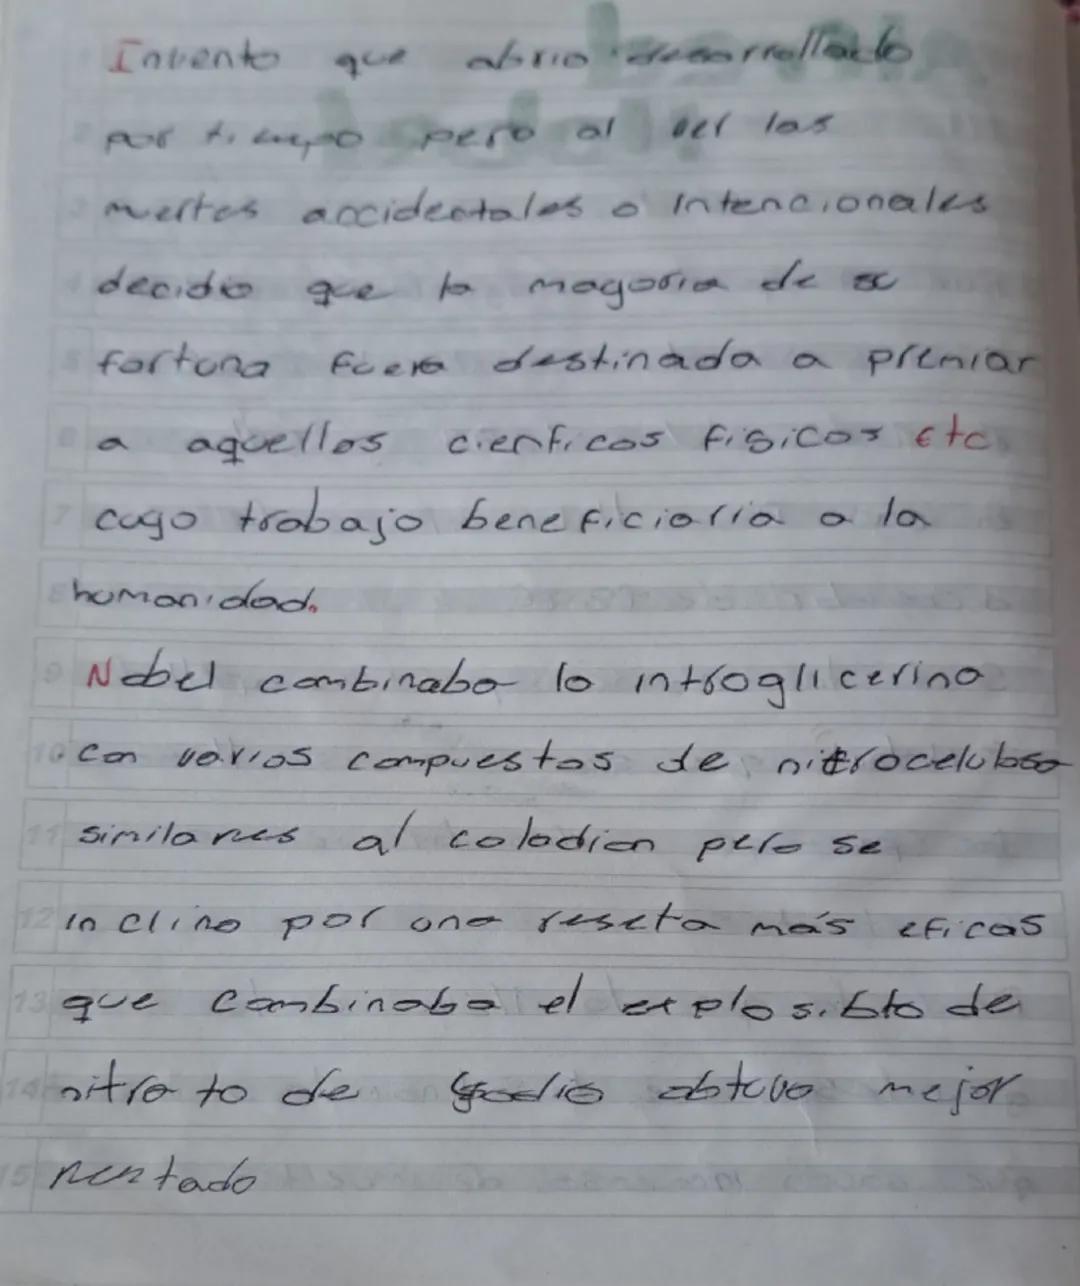 Invento que abrio desarrollado
por tiempo pero al ver las
muertes accidentales o intencionales
decidio que la mayoria de su
fortuna fuera destinada a premiar
a aquellos cienficos fisicos Etc
cuyo trabajo beneficiaria a la
humanidad.
Nobel combinaba la introglicerina
con varios compuestos de nitrocelulosa
similares al colodion pero se
inclino por una reseta más eficas
que combinaba el explosibto de
nitrato de obtuvo mejor